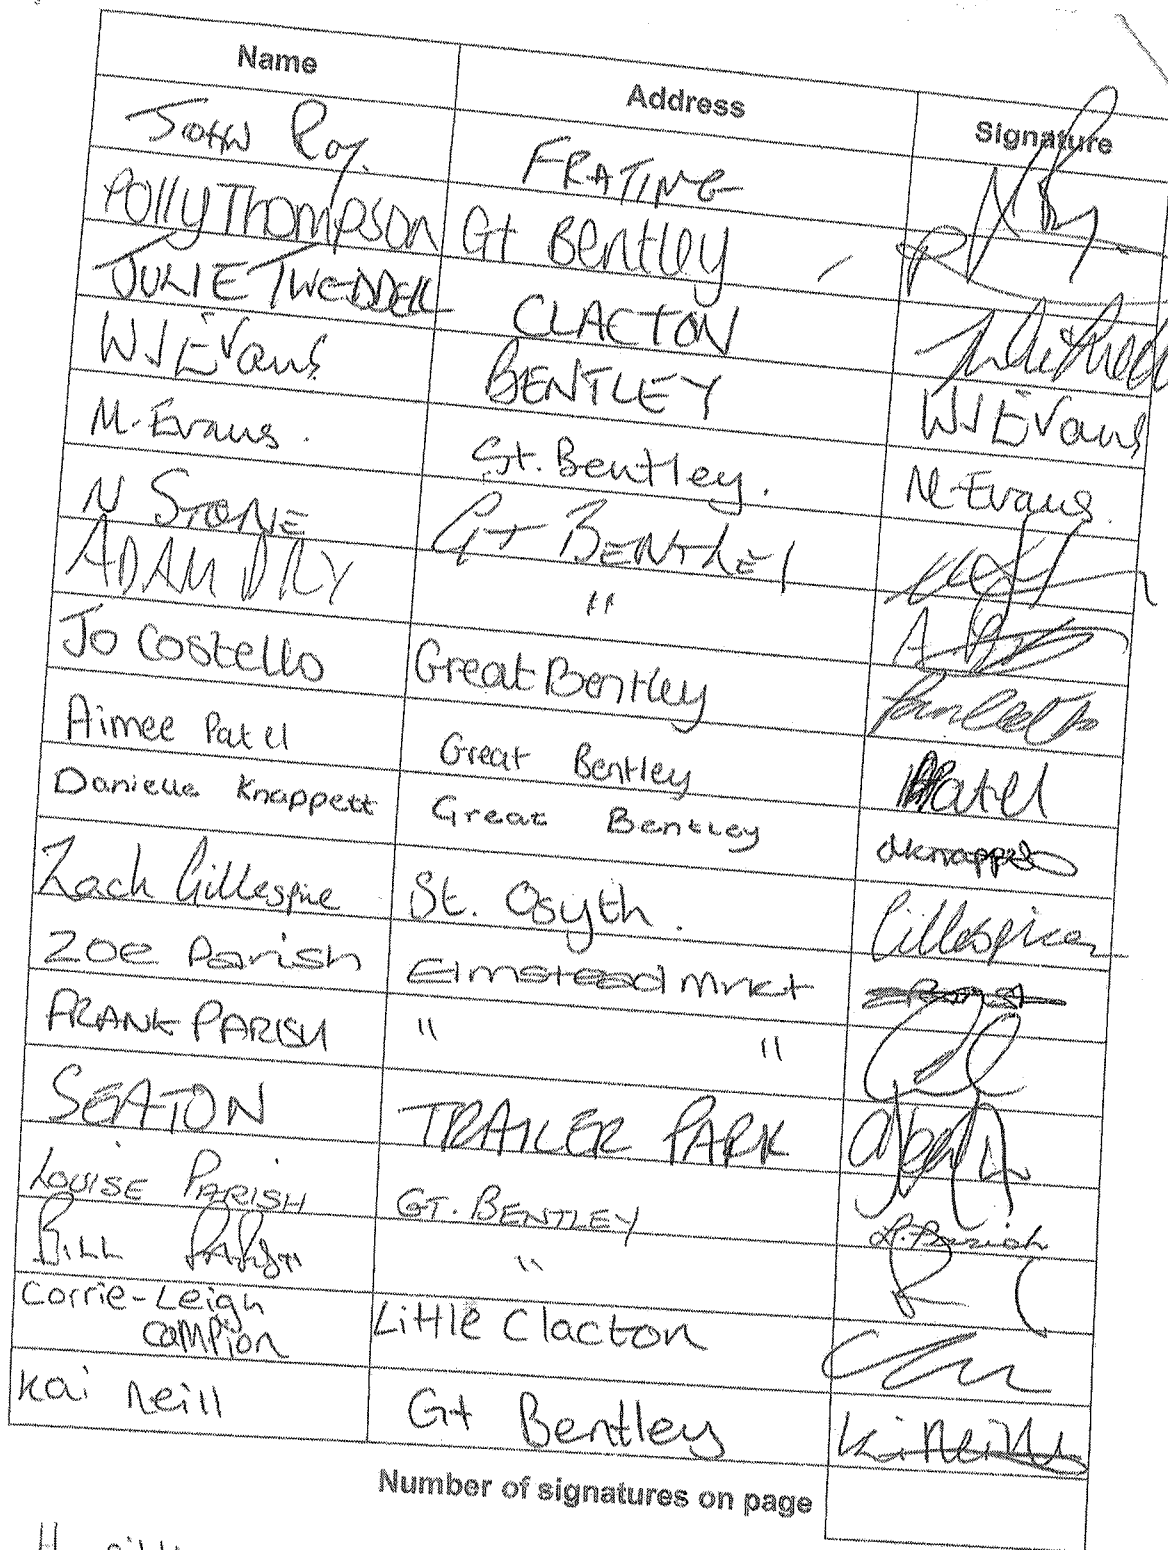 Name Address Signature
John Roy. FRATING
Polly Thompson Gt Bentley
JULIE TWEDDELL CLACTON
WJ Evans BENTLEY WJ Evans
M. Evans. Gt. Bentley. M. Evans.
N STONE Gt BENTLEY
ADAM DRY "
Jo Costello Great Bentley
Aimee Patel Great Bentley Patel
Danielle Knappett Great Bentley dknappett
Zach Gillespie St. Osyth. Gillespie
Zoe Parish Elmstead Mrkt
FRANK PARISH " "
SEATON TRAILER PARK
LOUISE PARISH GT. BENTLEY L. Parish
BILL PARISH "
Corrie-Leigh
Campion Little Clacton
Kai Neill Gt Bentley K Neill
Number of signatures on page